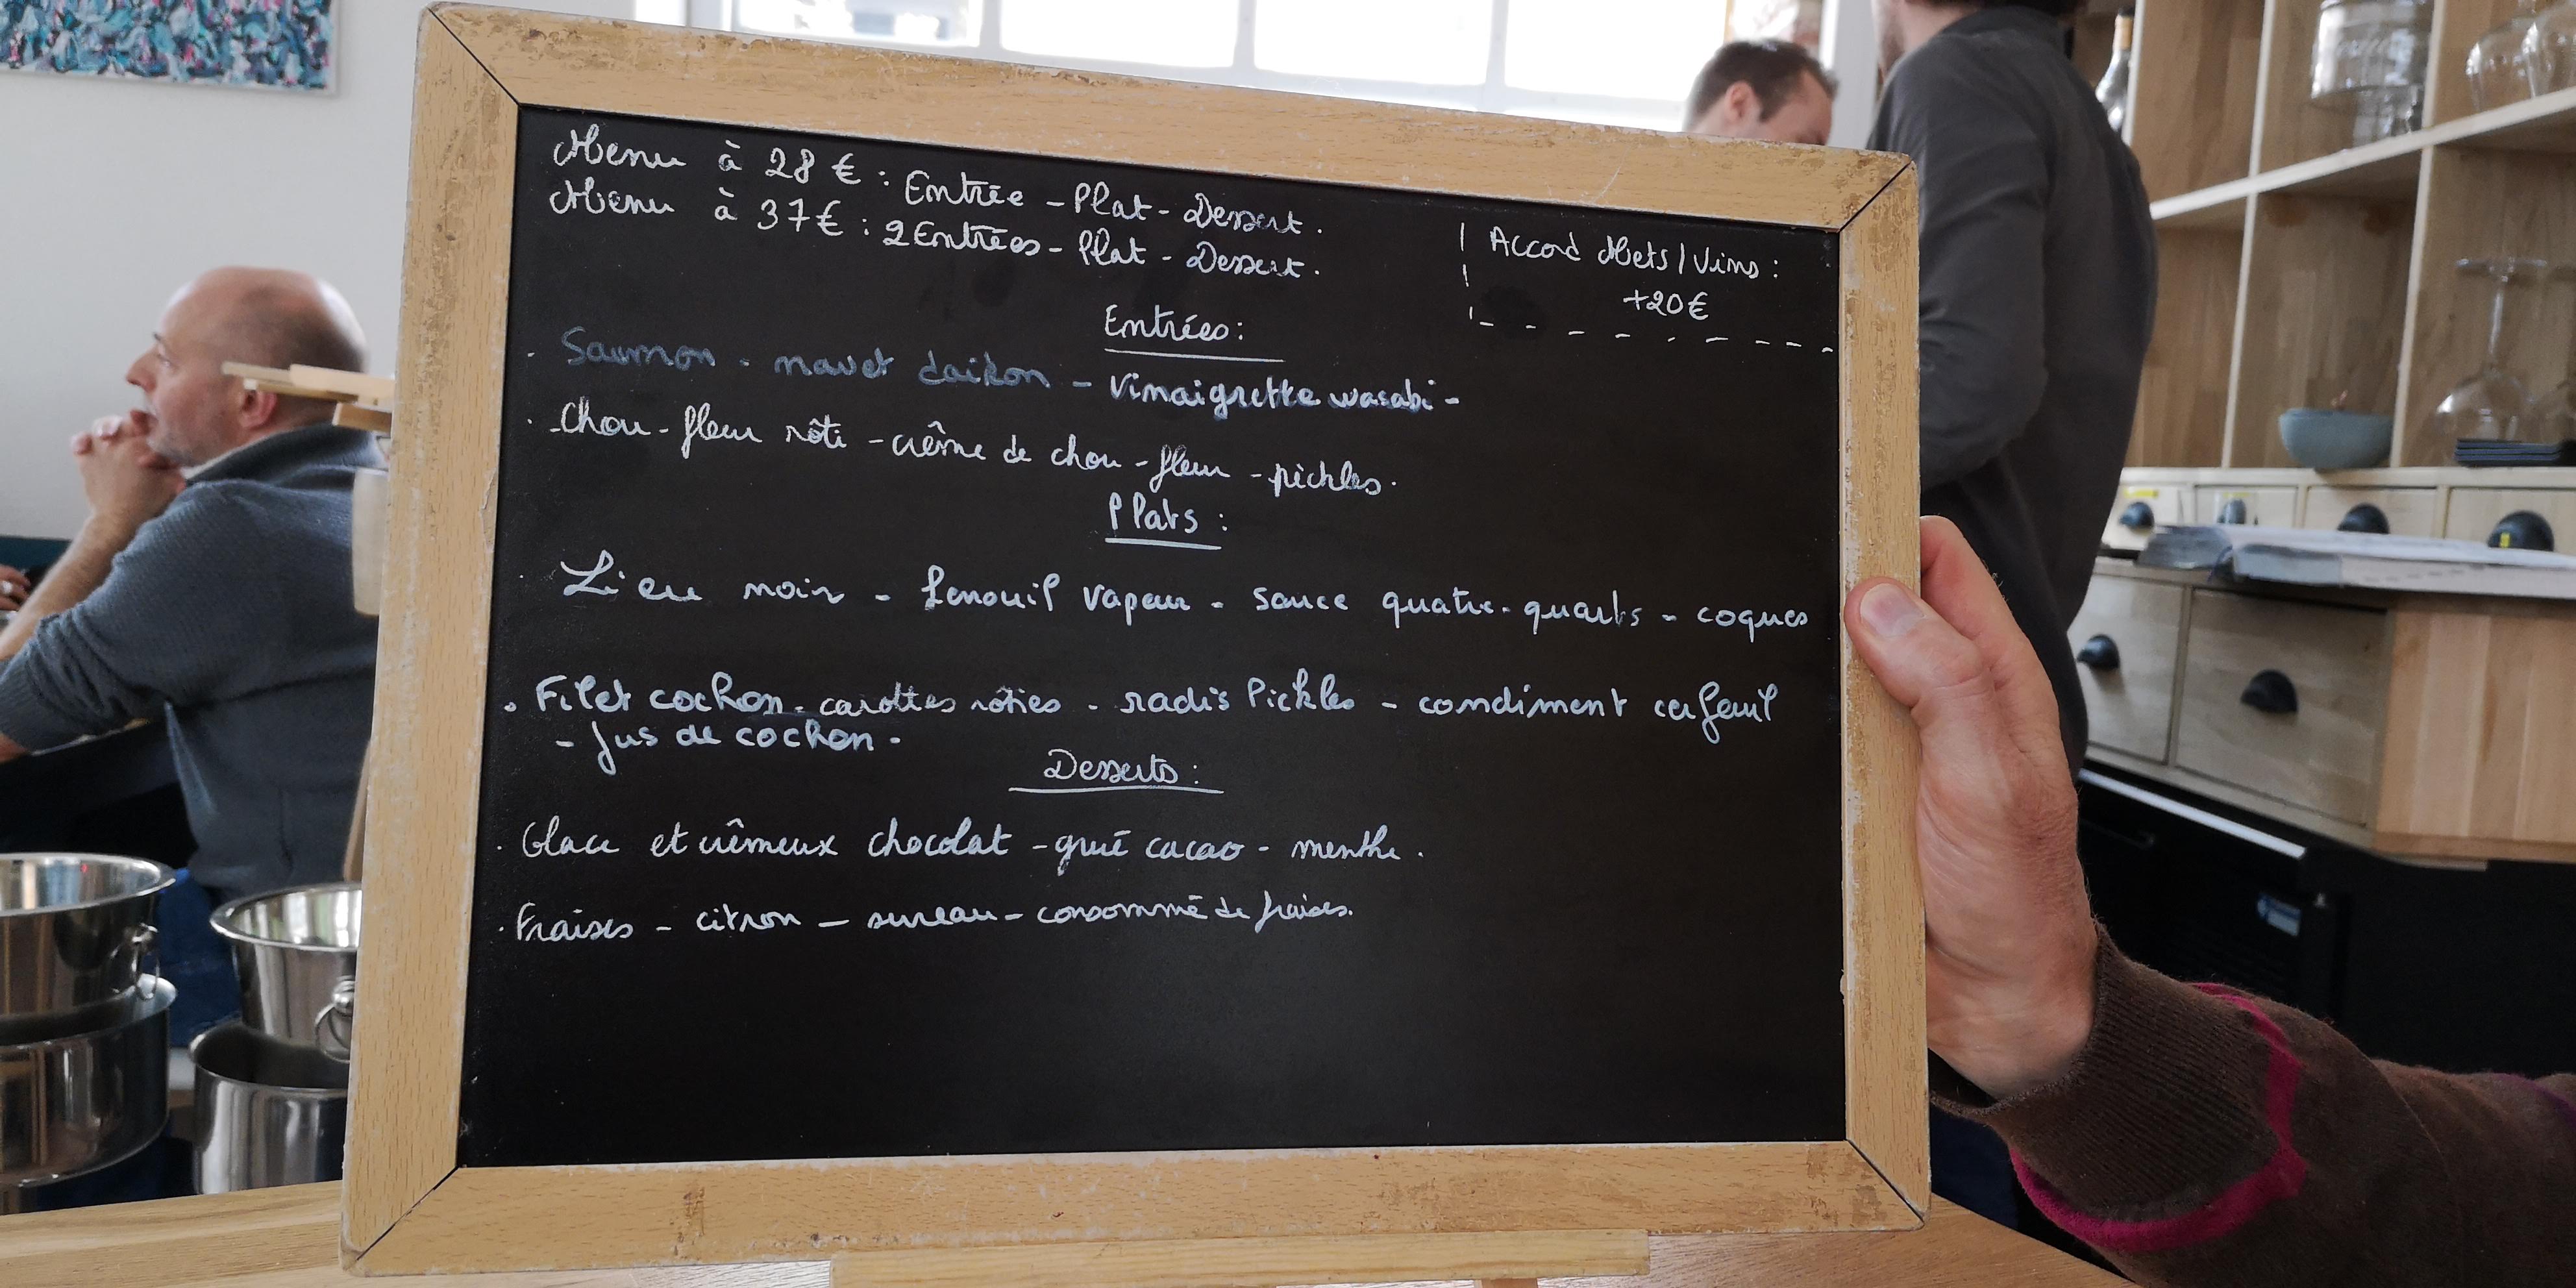 Menu à 28 € : Entrée - Plat - Dessert.
Menu à 37€ : 2 Entrées - Plat - Dessert.
Accord Mets / Vins :
+20€
Entrées :
· Saumon - navet daikon - Vinaigrette wasabi -
· Chou-fleur rôti - crème de chou-fleur - pickles.
Plats :
· Lieu noir - fenouil vapeur - sauce quatre-quarts - coques
· Filet cochon - carottes rôties - radis Pickles - condiment cerfeuil
- Jus de cochon -
Desserts :
· Glace et crémeux chocolat - grué cacao - menthe.
· Fraises - citron - sureau - consommé de fraises.